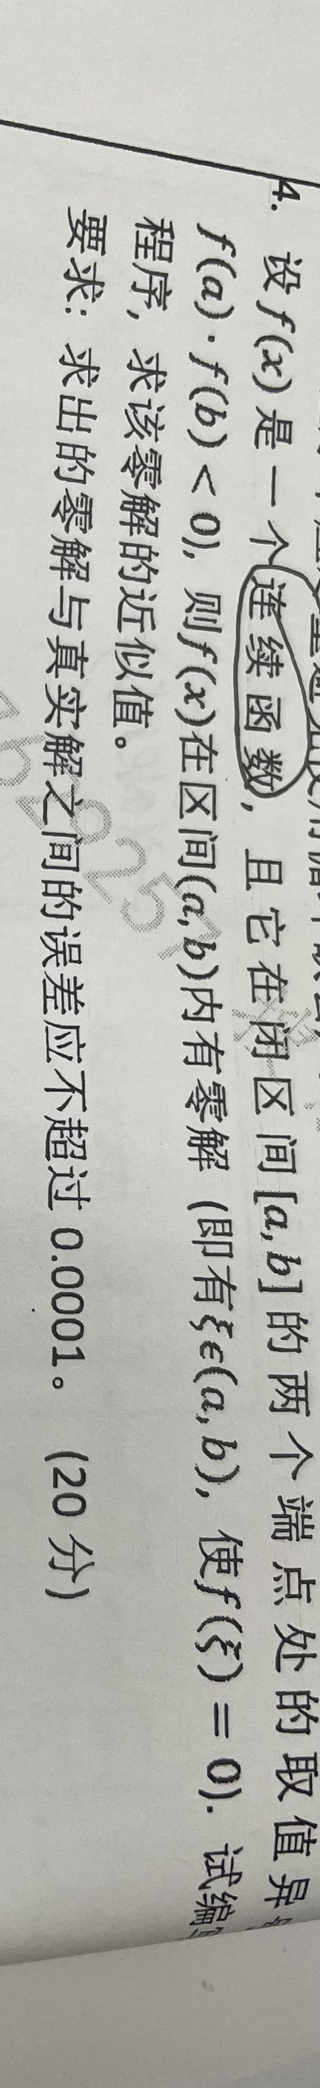 4. 设f(x)是一个连续函数，且它在闭区间[a,b]的两个端点处的取值异
f(a)·f(b)<0)，则f(x)在区间(a,b)内有零解（即有ξϵ(a,b)，使f(ξ)=0). 试编
程序，求该零解的近似值。
要求：求出的零解与真实解之间的误差应不超过 0.0001。（20 分）